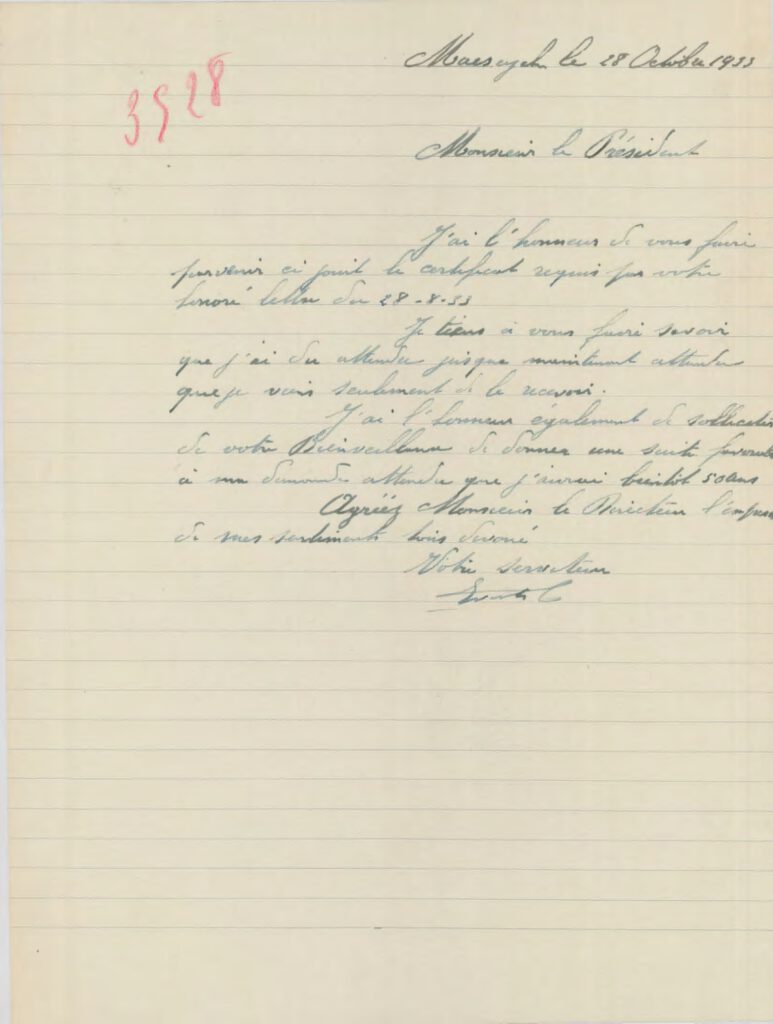 3528
Maeseyck le 28 Octobre 1933
Monsieur le Président
J'ai l'honneur de vous faire
parvenir ci joint le certificat requis par votre
honoré lettre du 28-8-33
Je tiens à vous faire savoir
que j'ai du attendre jusque maintenant attendu
que je viens seulement de le recevoir.
J'ai l'honneur également de solliciter
de votre Bienveillance de donner une suite favorable
à ma demande attendu que j'aurai bientôt 50 ans
Agréez Monsieur le Directeur l'
de mes sentiments très dévoué
Votre serviteur